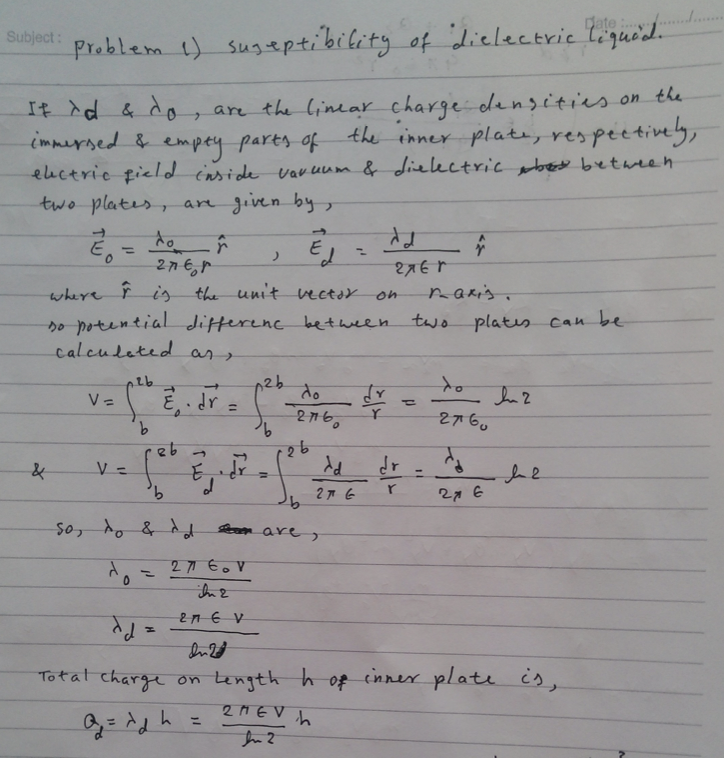 Subject:
Date :....../......../........
Problem 1) suseptibility of dielectric liquid.
If λd & λ0, are the linear charge densities on the
immersed & empty parts of the inner plate, respectively,
electric field inside vacuum & dielectric between
two plates, are given by,
E⃗₀ = λ₀ / 2πε₀r r̂ , E⃗d = λd / 2πεr r̂
where r̂ is the unit vector on r-axis.
so potential differenc between two plates can be
calculated as,
V = ∫_b^2b E⃗₀ · dr⃗ = ∫_b^2b λ₀ / 2πε₀ dr / r = λ₀ / 2πε₀ ln 2
& V = ∫_b^2b E⃗d · dr⃗ = ∫_b^2b λd / 2πε dr / r = λd / 2πε ln 2
so, λ₀ & λd are,
λ₀ = 2πε₀V / ln 2
λd = 2πεV / ln 2
Total charge on length h of inner plate is,
Qd = λd h = 2πεV / ln 2 h